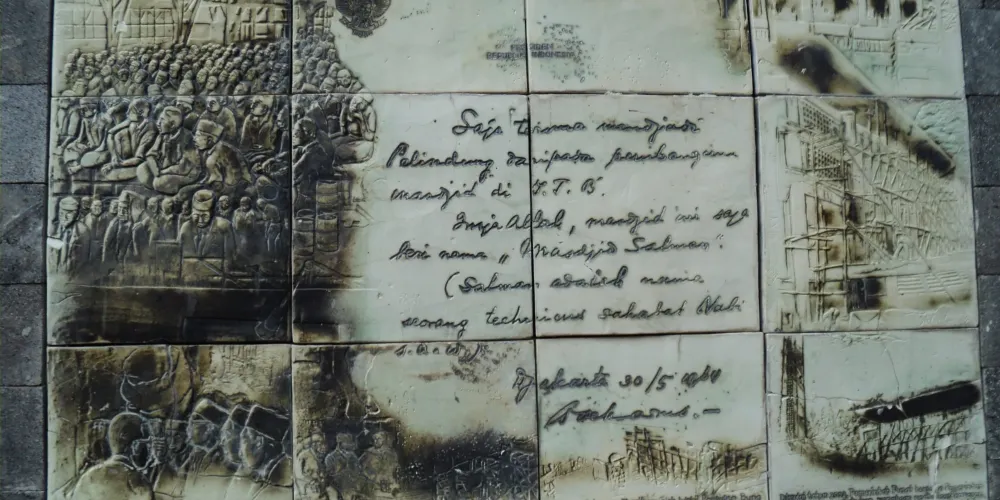 PRESIDEN
REPUBLIK INDONESIA
Saja terima mendjadi
Pelindung daripada pembangunan
mesdjid di I.T.B.
Insja Allah, mesdjid ini saja
beri nama „Masdjid Salman".
(Salman adalah nama
seorang technicus sahabat Nabi
s.a.w.)
Djakarta 30/5 1964
Soekarno.—